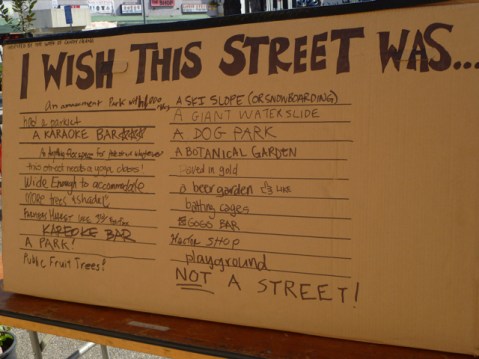 I WISH THIS STREET WAS...
An amusement Park with
had a product
A KARAOKE BAR
this street needs a yoga classes!
Wide Enough to accommodate
more trees & shade
KAREOKE BAR
A PARK!
Public Fruit Trees!
A SKI SLOPE (OR SNOWBOARDING)
A GIANT WATERSLIDE
A DOG PARK
A BOTANICAL GARDEN
Paved in gold
a beer garden
batting cages
GOGO BAR
SHOP
playground
NOT A STREET!